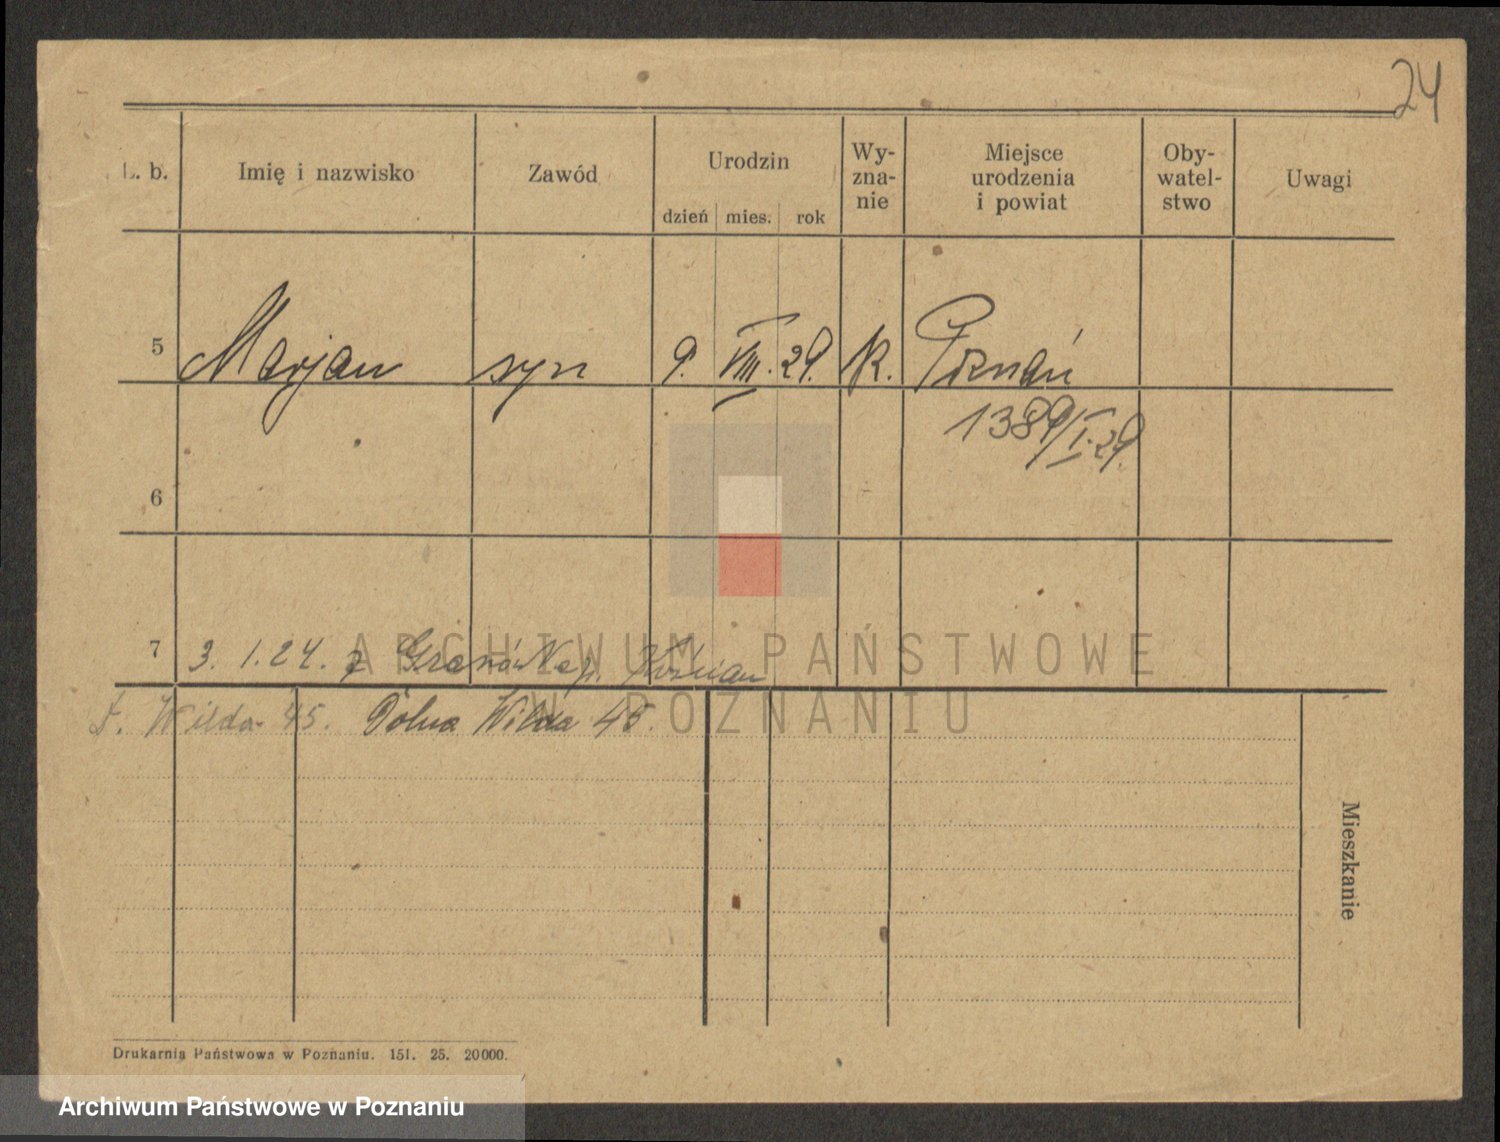 24
L. b. Imię i nazwisko Zawód Urodzin dzień mies. rok Wy-zna-nie Miejsce urodzenia i powiat Oby-watel-stwo Uwagi
5 Marjan syn 9. VIII. 29. k. Poznań
1389/I.29.
6
7 3. 1. 24. z p. Kościan
Wilda 45. Dolna Wilda 45.
Mieszkanie
Drukarnia Państwowa w Poznaniu. 151. 25. 20000.
ARCHIWUM PAŃSTWOWE
W POZNANIU
Archiwum Państwowe w Poznaniu